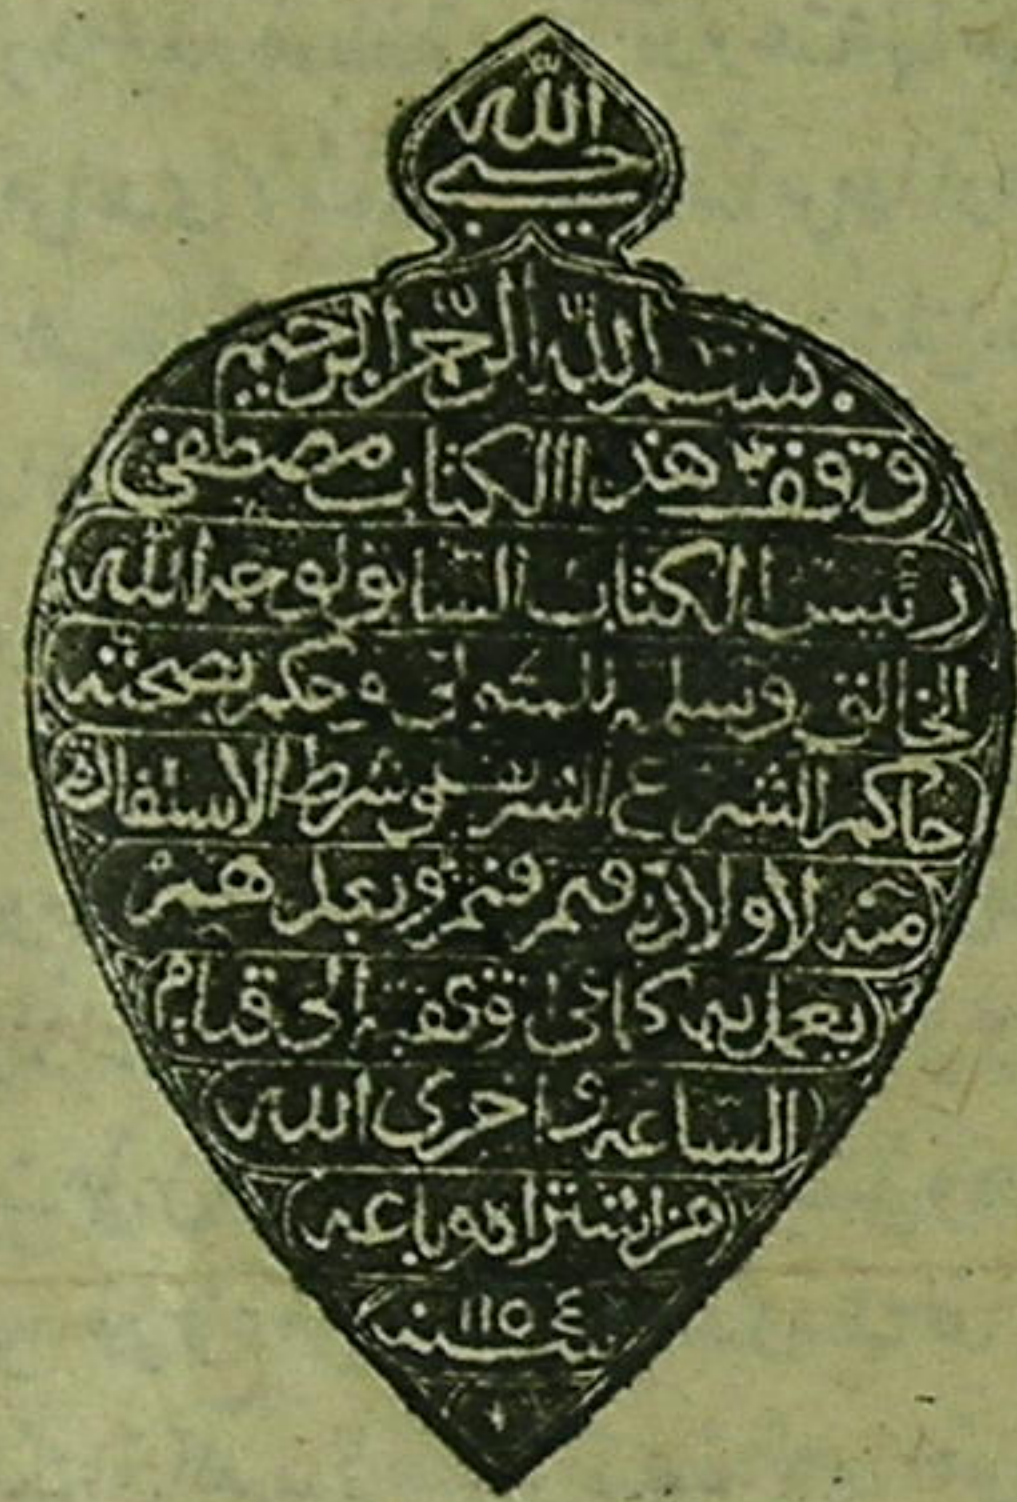 الله
حسبي
بسم الله الرحمن الرحيم
وقف هذا الكتاب مصطفى
رئيس الكتاب السابق لوجه الله
الخالق وسلمه للمتولي وحكم بصحته
حاكم الشرع الشريف وشرط الاستفادة
منه لأولاده ثم فثم وبعدهم
يعمل به كما في وقفيته إلى قيام
الساعة وأخزى الله
من اشتراه وباعه
سنة ١١٥٤